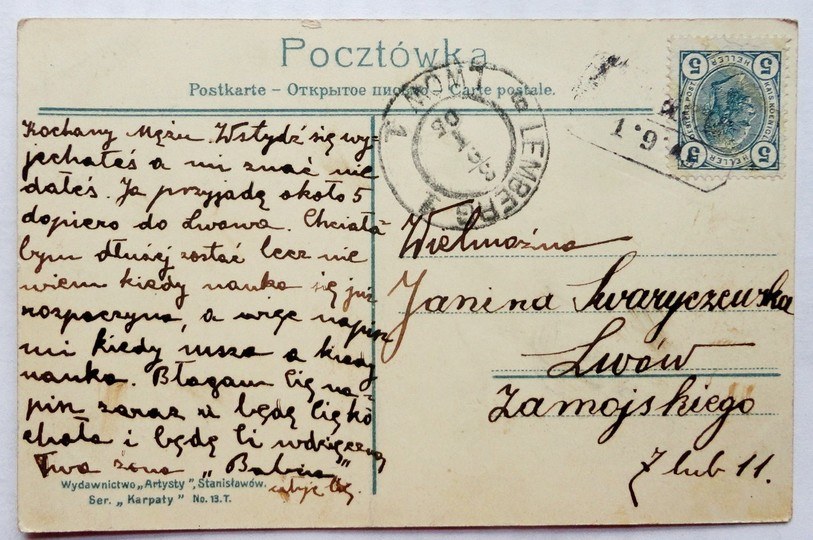 Pocztówka
Postkarte – Открытое письмо – Carte postale.
5 5
HELLER
5 5
HELLER
LEMBERG
LWOW
1
Kochany Mężu. Wstydź się wy=
jechałeś a mi znać nie
dałeś. Ja przyjadę około 5
dopiero do Lwowa. Chciała
bym dłużej zostać lecz nie
wiem kiedy nauka się już
rozpoczyna, a więc napisz
mi kiedy msza a kiedy
nauka. Błagam Cię na=
pisz zaraz a będę Cię ko
chała i będę Ci wdzięczną
Twa żona „Babcia"
Wielmożna
Janina Swaryczewska
Lwów
Zamojskiego
7 lub 11.
Wydawnictwo „Artysty", Stanisławów.
Ser. „Karpaty" No. 13.T.